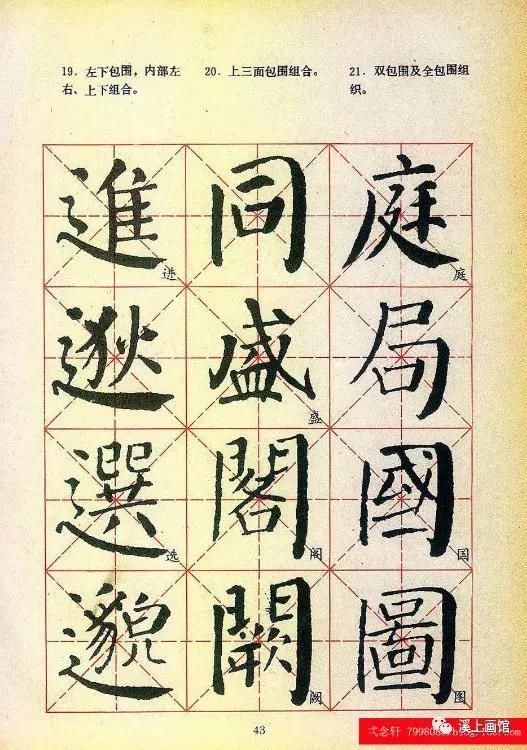 19. 左下包围，内部左
右、上下组合。
20. 上三面包围组合。
21. 双包围及全包围组
织。
進 同 庭
进 庭
逖 盛 局
盛
選 閣 國
选 阁 国
邈 闕 圖
阙 图
43
弋念轩
溪上画馆